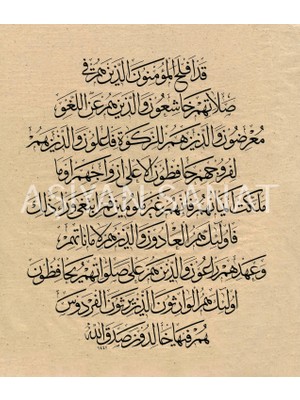 قد افلح المؤمنون الذين هم في
صلاتهم خاشعون والذين هم عن اللغو
معرضون والذين هم للزكوة فاعلون والذين هم
لفروجهم حافظون الا على ازواجهم او ما
ملكت ايمانهم فانهم غير ملومين فمن ابتغى وراء ذلك
فاولئك هم العادون والذين هم لاماناتهم
وعهدهم راعون والذين هم على صلواتهم يحافظون
اولئك هم الوارثون الذين يرثون الفردوس
هم فيها خالدون صدق الله
ASİYAN SANAT